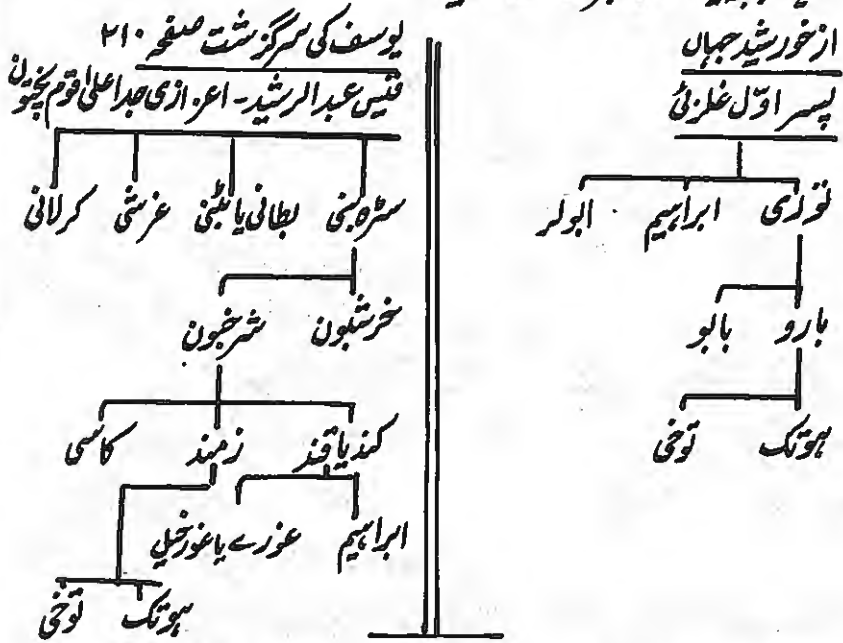 از خورشید جہاں
پسر اوّل غلزئی
توری ابراہیم ابولر
بارو بالو
ہوتک توخی
یوسف کی سرگزشت صفحہ ۲۱۰
قیس عبدالرشید - اعزازی جد اعلیٰ قوم پختون
سڑہ بنی بطانی یا بٹنی غرشتی کرلانی
خرشبون شرخبون
کند یا قند زمند کاسی
ابراہیم غورے یا غوریخیل
ہوتک توخی